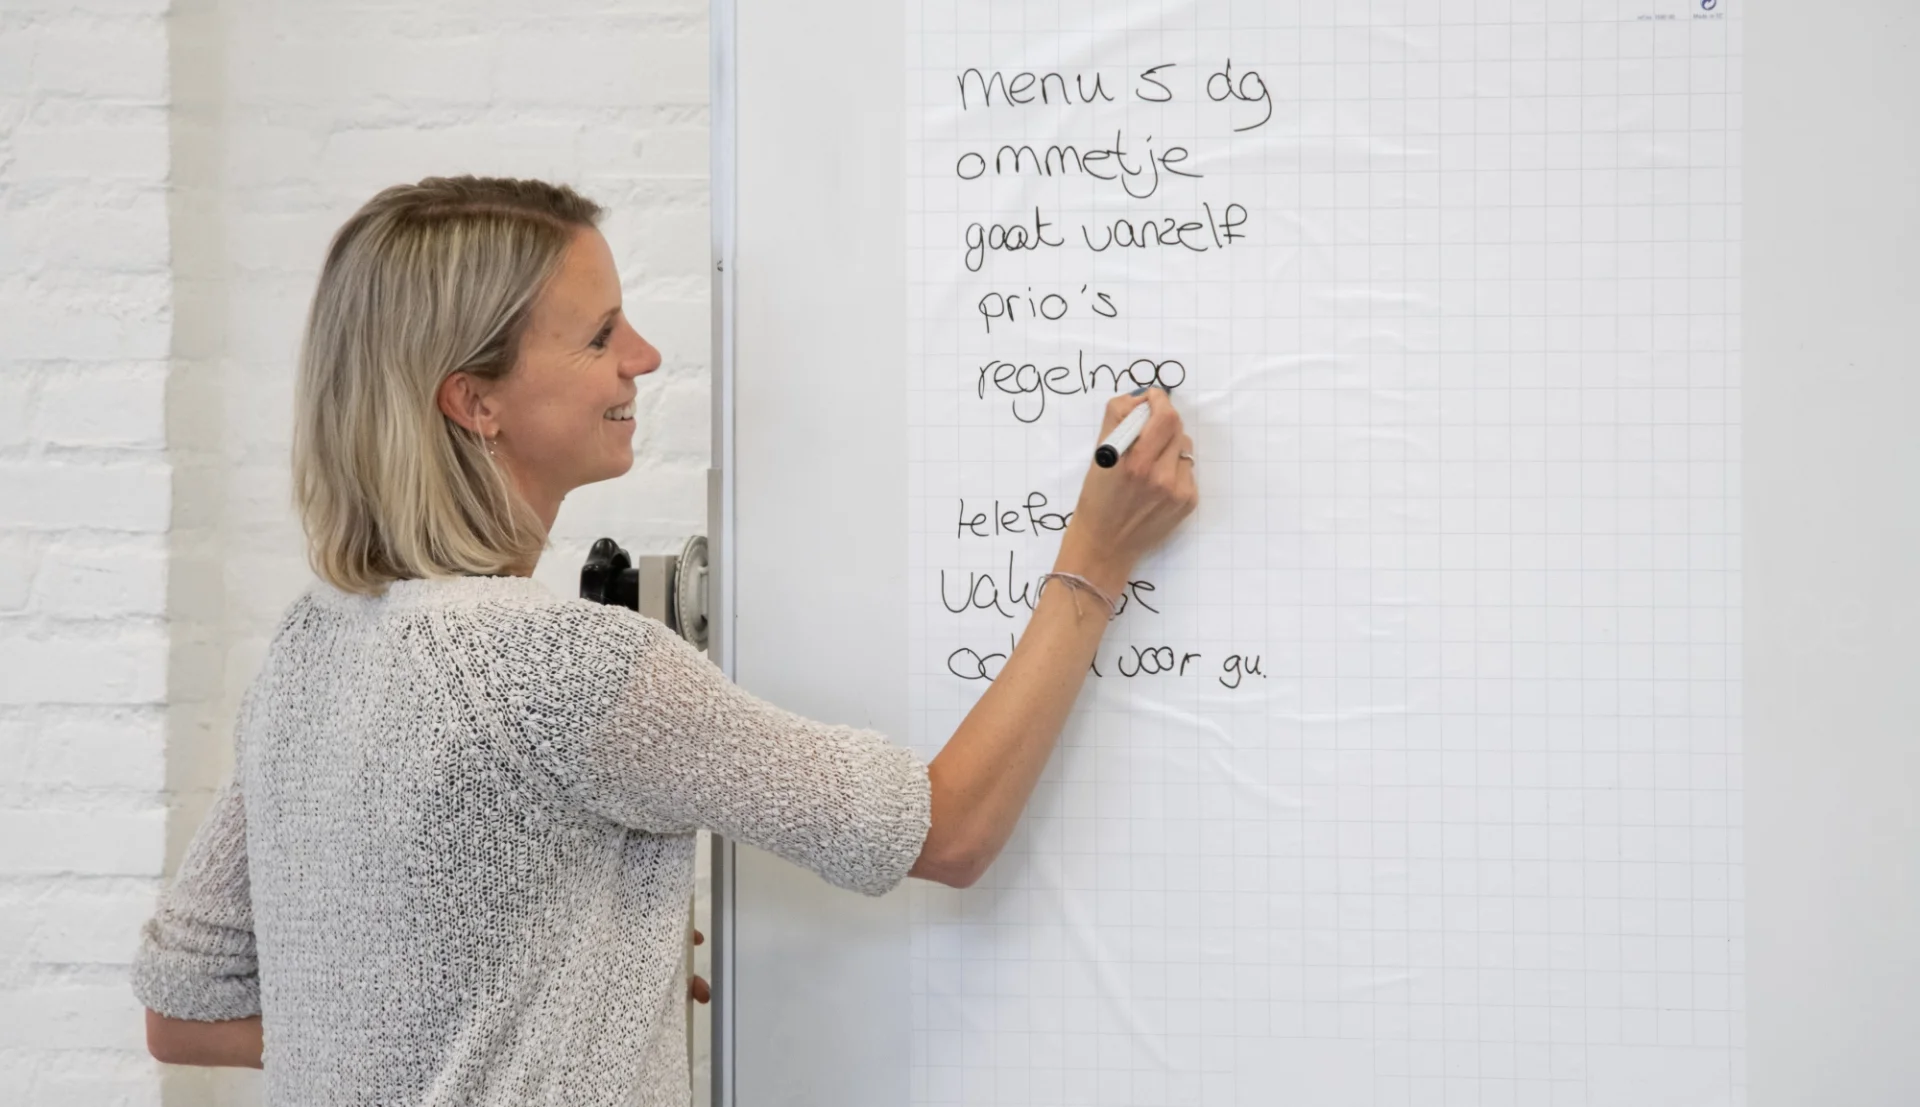 menu 5 dg
ommetje
gaat vanzelf
prio's
regelmaa
voor gu.